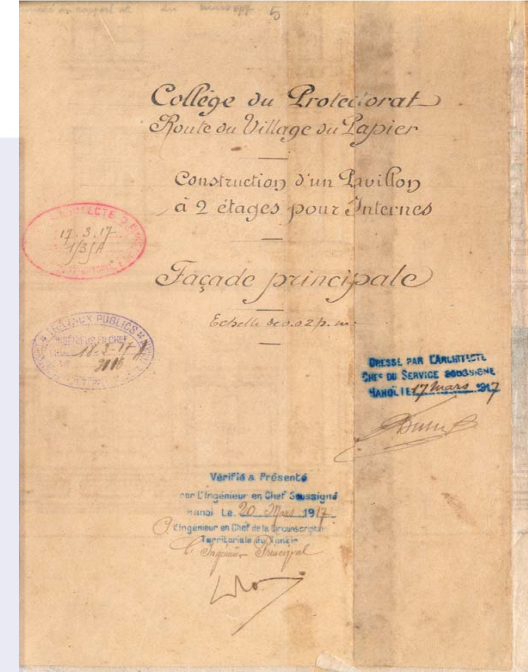 5
Collège du Protectorat
Route du Village du Papier
Construction d'un Pavillon
à 2 étages pour Internes
Façade principale
Echelle de 0.02 p. m.
17.3.17
TRAVAUX PUBLICS
18-3-17
DRESSÉ PAR L'ARCHITECTE
CHEF DU SERVICE SOUSSIGNÉ
HANOÏ, LE 17 mars 1917
Vérifié & Présenté
par l'Ingénieur en Chef Soussigné
Hanoi Le 20 Mars 1917
L'Ingénieur en Chef de la Circonscription
Territoriale du Tonkin
L'Ingénieur Principal